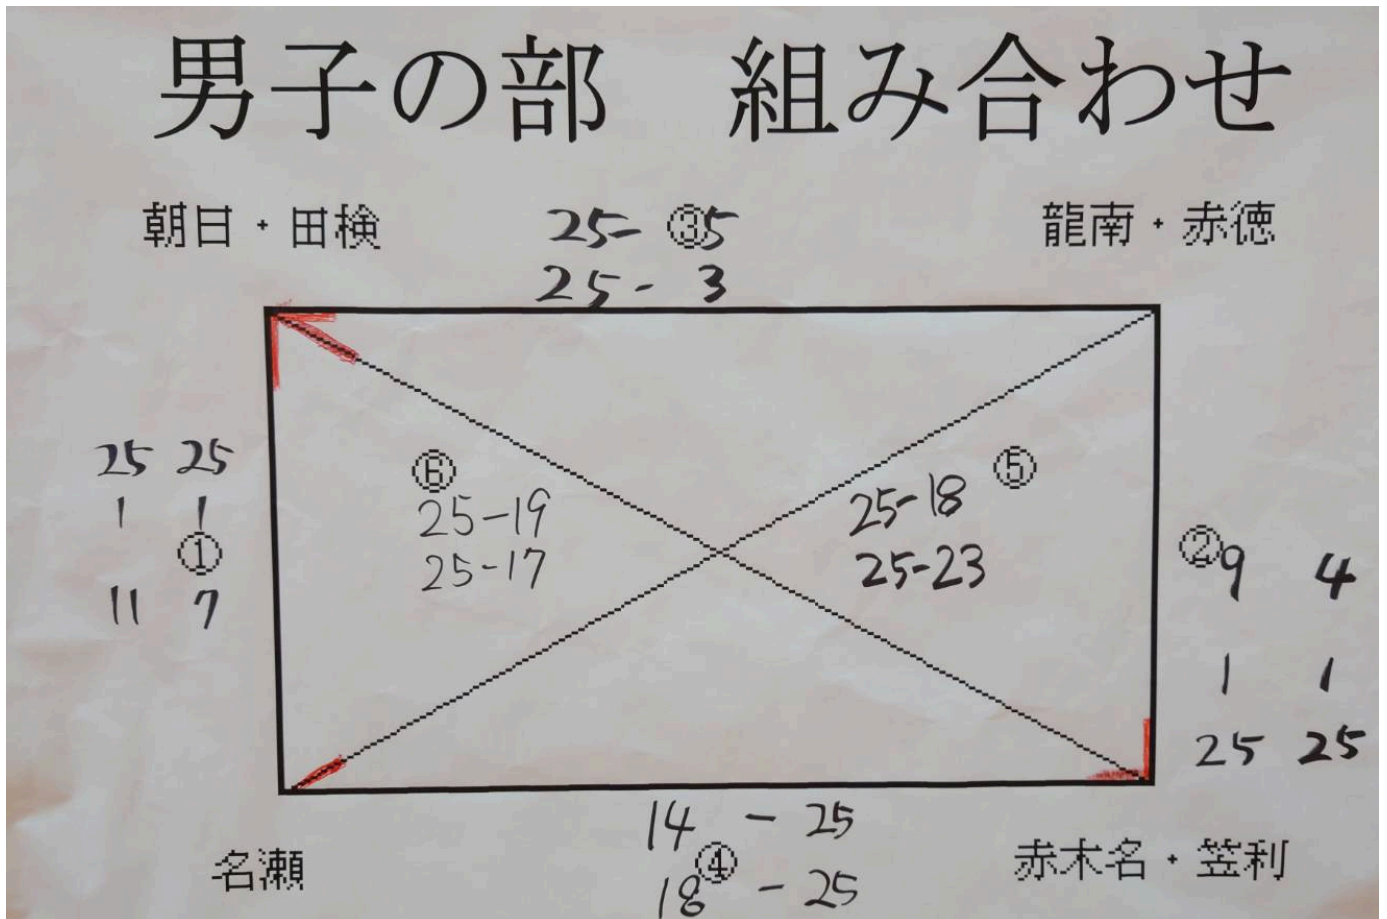 男子の部 組み合わせ
朝日・田検
25-③5
25-3
龍南・赤徳
25 25
1 1
①
11 7
⑥
25-19
25-17
⑤
25-18
25-23
②
9 4
1 1
25 25
14-25
④
18-25
名瀬
赤木名・笠利